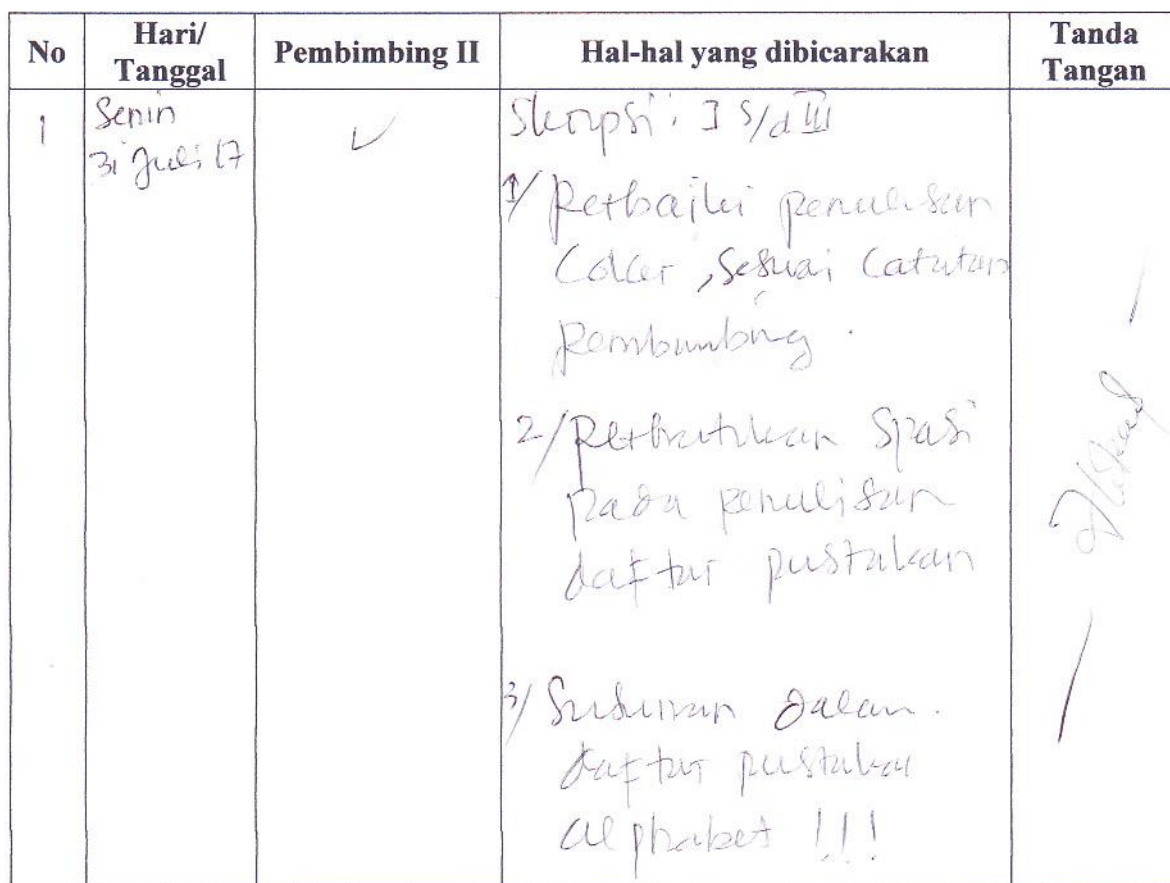 No Hari/ Tanggal Pembimbing II Hal-hal yang dibicarakan Tanda Tangan
1 Senin ✓ Skripsi : I s/d III
31 Juli 17
1/ Perbaiki penulisan
Cover, sesuai Catatan
Pembimbing .
2/ Perhatikan Spasi
pada penulisan
daftar pustakan
3/ Susunan dalam.
daftar pustaka
alphabet !!!